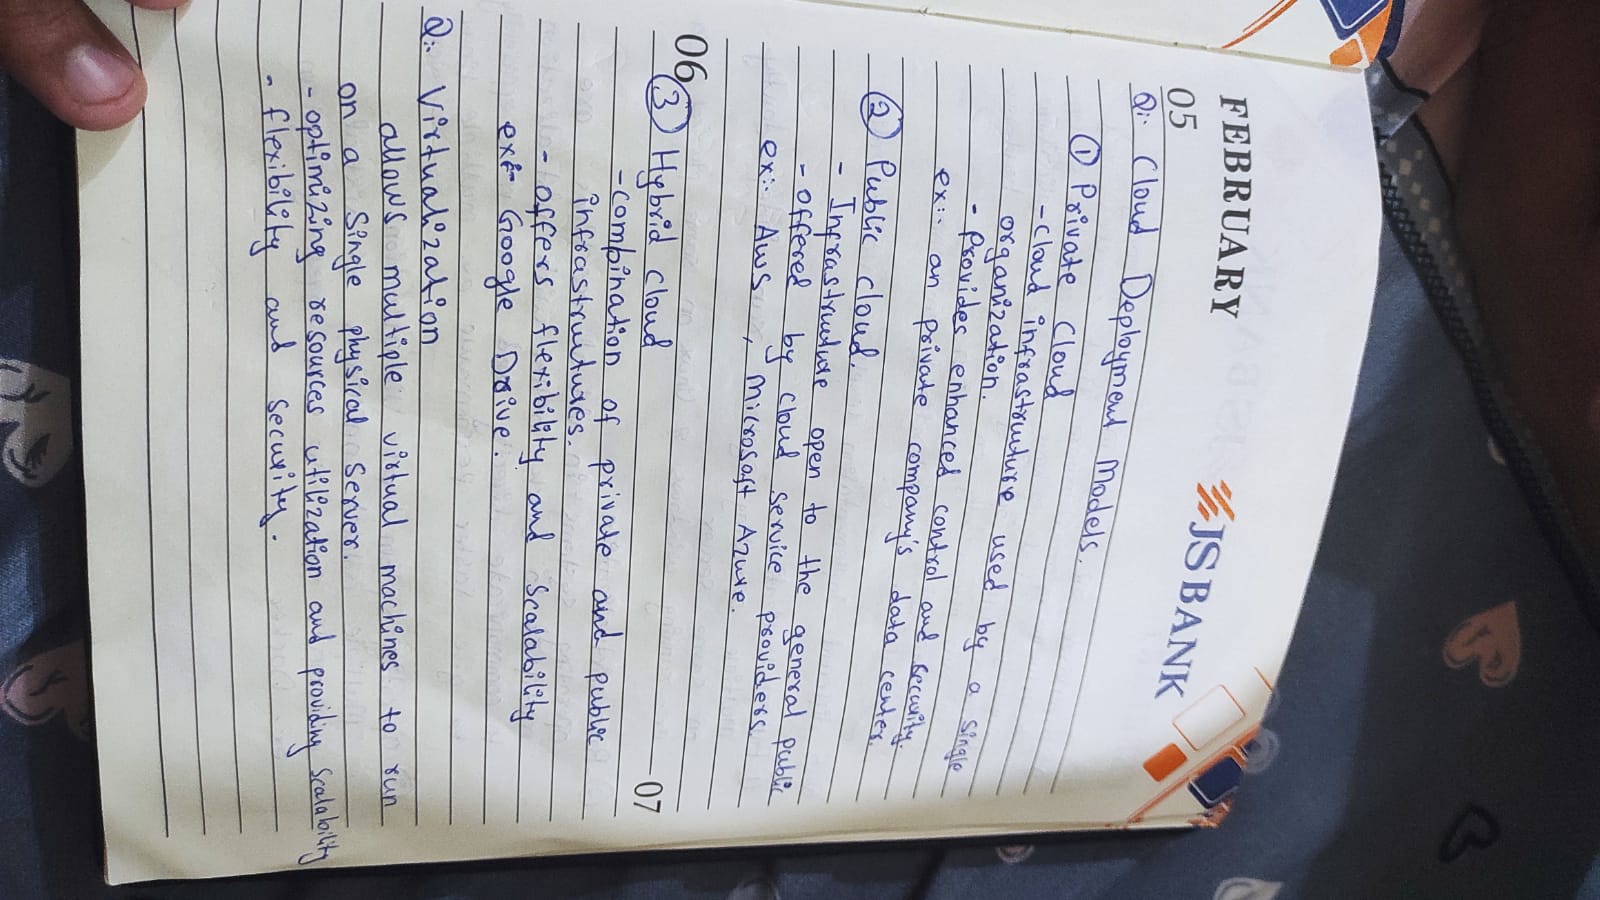 FEBRUARY
JS BANK
05
Q:. Cloud Deployment Models.
① Private Cloud
- Cloud infrastructure used by a single
organization.
- Provides enhanced control and security.
ex:- an private company's data center.
② Public cloud.
- Infrastructure open to the general public
- offered by cloud service providers.
ex:- AWS , Microsoft Azure.
06
07
③ Hybrid cloud
- combination of private and public
infrastructures.
- offers flexibility and scalability
ex:- Google Drive.
Q:. Virtualization
allows multiple virtual machines to run
on a single physical server.
- optimizing resources utilization and providing scalability
- flexibility and security.